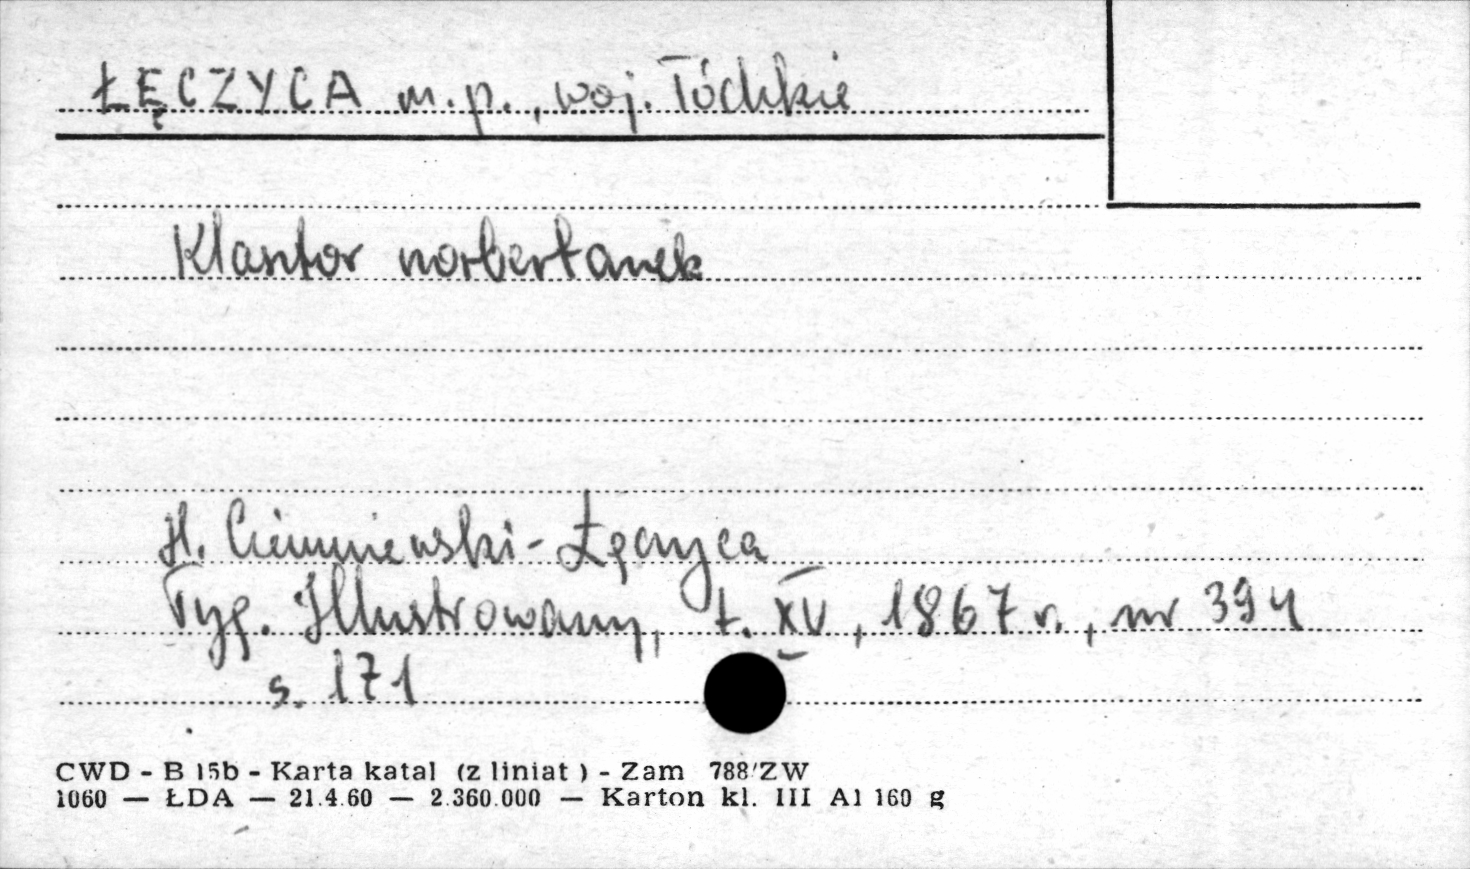 ŁĘCZYCA m.p., woj. łódzkie
Klasztor norbertanek
H. Ciemniewski - Łęczyca
Tyg. Illustrowany, t. XV, 1867 r., nr 394
s. 171
CWD - B 15b - Karta katal (z liniat ) - Zam 788/ZW
1060 — ŁDA — 21.4.60 — 2.360.000 — Karton kl. III A1 160 g